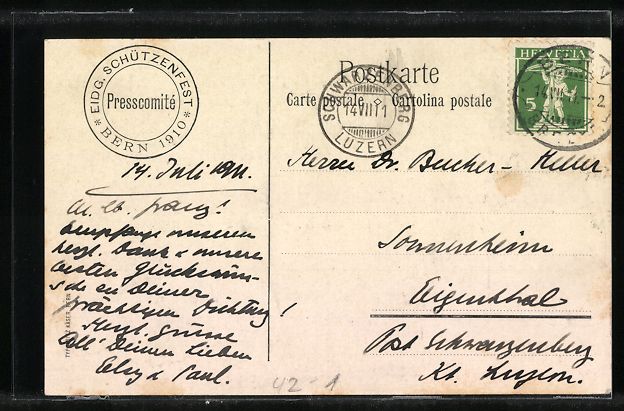 EIDG. SCHÜTZENFEST
Presscomité
* BERN 1910 *
Postkarte
Carte postale Cartolina postale
SCHWARZENBERG
14 VII 11
LUZERN
HELVETIA
5
14 Juli 1911.
M. lb. Franz!
Empfange unseren
herzl. Dank & unsere
besten Glückwün-
sche zu Deiner
prächtigen Dichtung!
Herzl. Grüsse
All' Deinen Lieben
Elsy & Paul.
Herrn Dr. Bucher-Heller
Sonnenheim
Eigenthal
Post Schwarzenberg
Kt. Luzern.
42-1